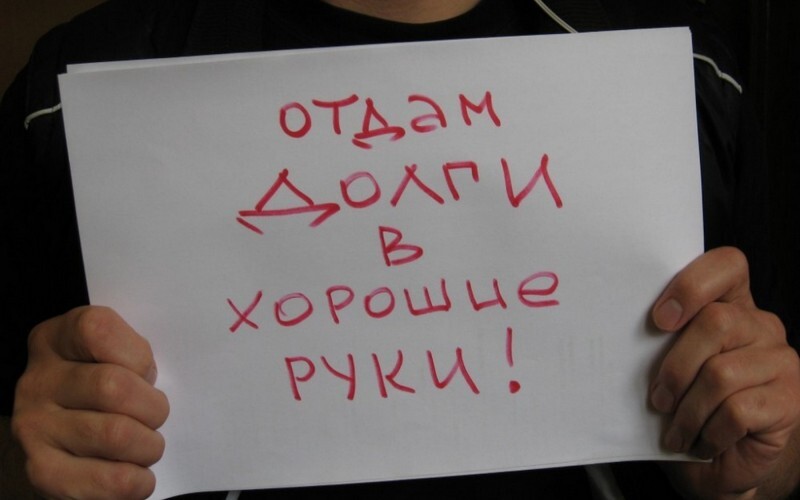 отдам
долги
в
хорошие
руки!